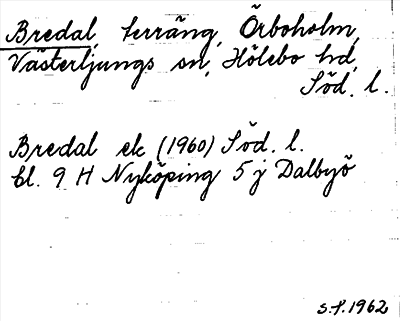 Bredal, terräng, Örboholm,
Västerljungs sn, Hölebo hd,
Söd. l.
Bredal ek (1960) Söd. l.
bl. 9 H Nyköping 5 j Dalbyö
s.f. 1962